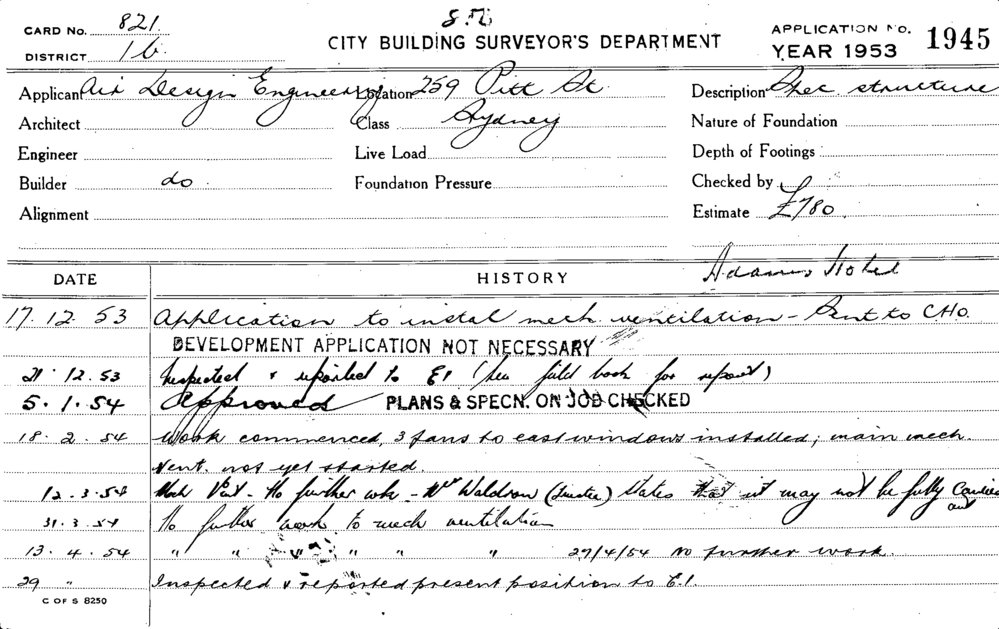 CARD No. 821.
DISTRICT 16.
CITY BUILDING SURVEYOR'S DEPARTMENT
APPLICATION No. 1945
YEAR 1953
Applicant Air Design Engineering Location 259 Pitt St. Description Spec. structure
Architect Class Sydney Nature of Foundation
Engineer Live Load Depth of Footings
Builder do. Foundation Pressure Checked by
Alignment Estimate £780.
Adams Hotel
DATE HISTORY
17.12.53 Application to instal mech. ventilation - Sent to C.H.O.
DEVELOPMENT APPLICATION NOT NECESSARY
21.12.53 Inspected & reported to E1 (See field book for report)
5.1.54 Approved PLANS & SPECN. ON JOB CHECKED
18.2.54 Work commenced, 3 fans to east windows installed, main mech.
Vent. not yet started.
12.3.54 Mech Vent - No further wk - Mr Waldron (Trustee) States that it may not be fully Carried out
31.3.54 No further work to mech ventilation
13.4.54 " " " " " " 29/4/54 No further work.
29 " Inspected & reported present position to E.1.
C OF S 8250